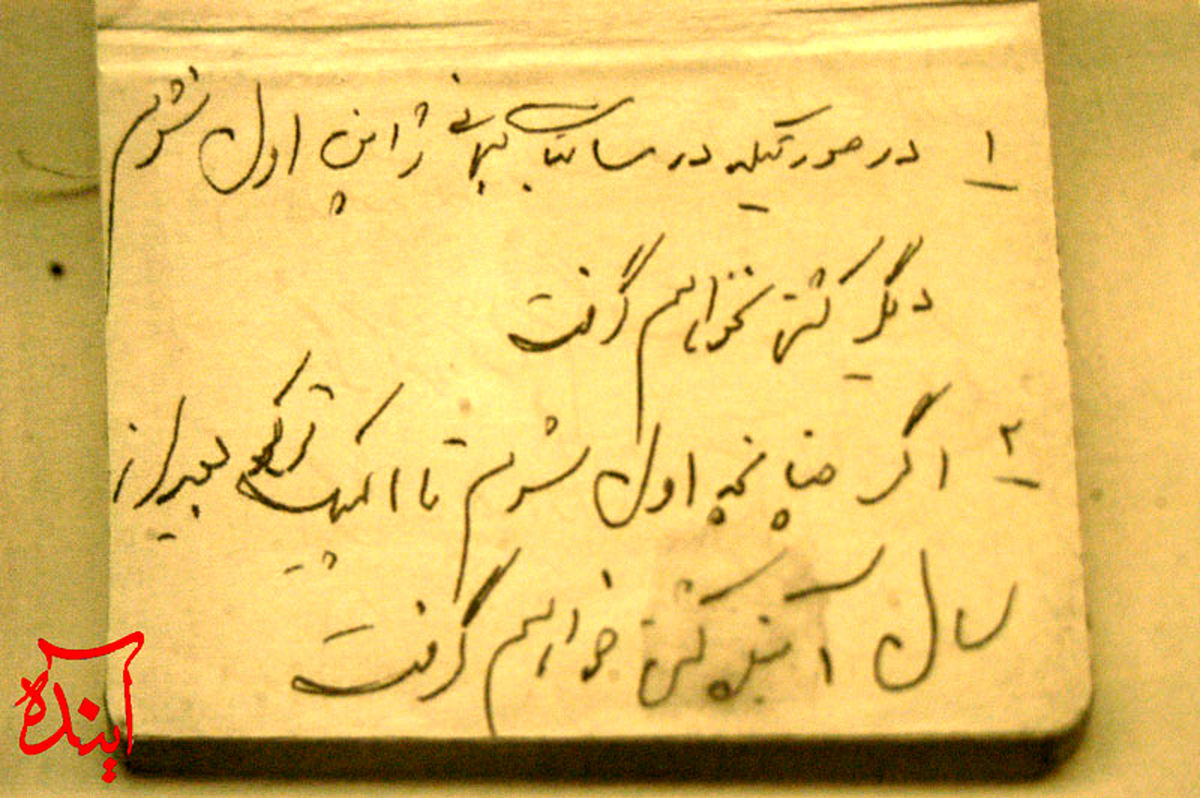 ۱ در صورتیکه در مسابقات جهانی ژاپن اول نشوم
دیگر کشتی نخواهم گرفت
۲ اگر چنانچه اول شدم تا المپیک توکیو بعد از
سال آینده کشتی خواهم گرفت
آینده